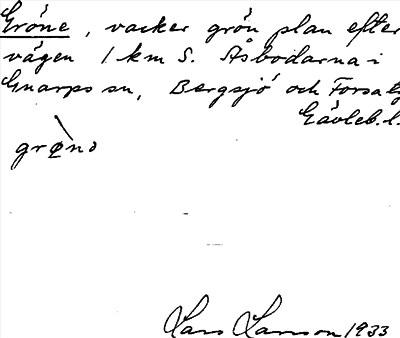 Gröne, vacker grön plan efter
vägen 1 km S. Åsbodarna i
Gnarps sn, Bergsjö och Forsa hd
Gävleb. l.
grø̀nə
Lars Larsson 1933